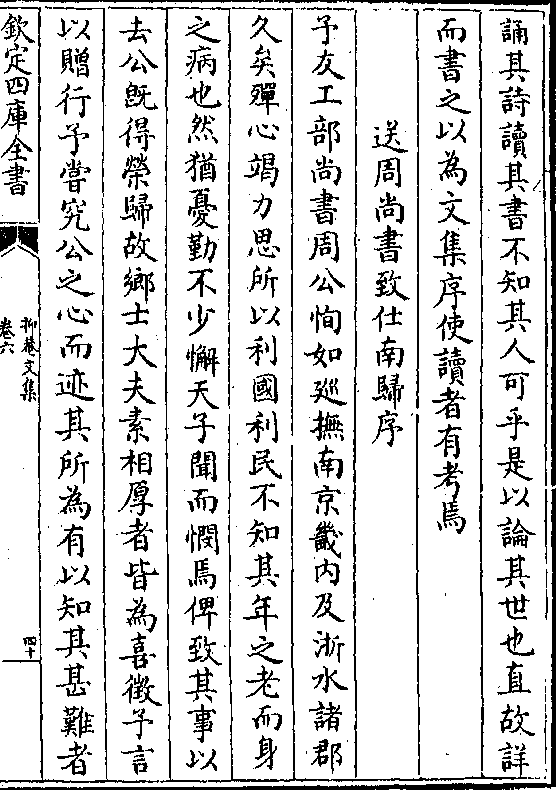 誦其詩讀其書不知其人可乎是以論其世也直故詳
而書之以為文集序使讀者有考焉
送周尚書致仕南歸序
予友工部尚書周公恂如廵撫南京畿内及浙水諸郡
久矣殫心竭力思所以利國利民不知其年之老而身
之病也然猶憂勤不少懈天子聞而憫焉俾致其事以
去公既得榮歸故鄉士大夫素相厚者皆為喜徵予言
以贈行予嘗究公之心而迹其所為有以知其甚難者
欽定四庫全書
抑菴文集
卷六
四十